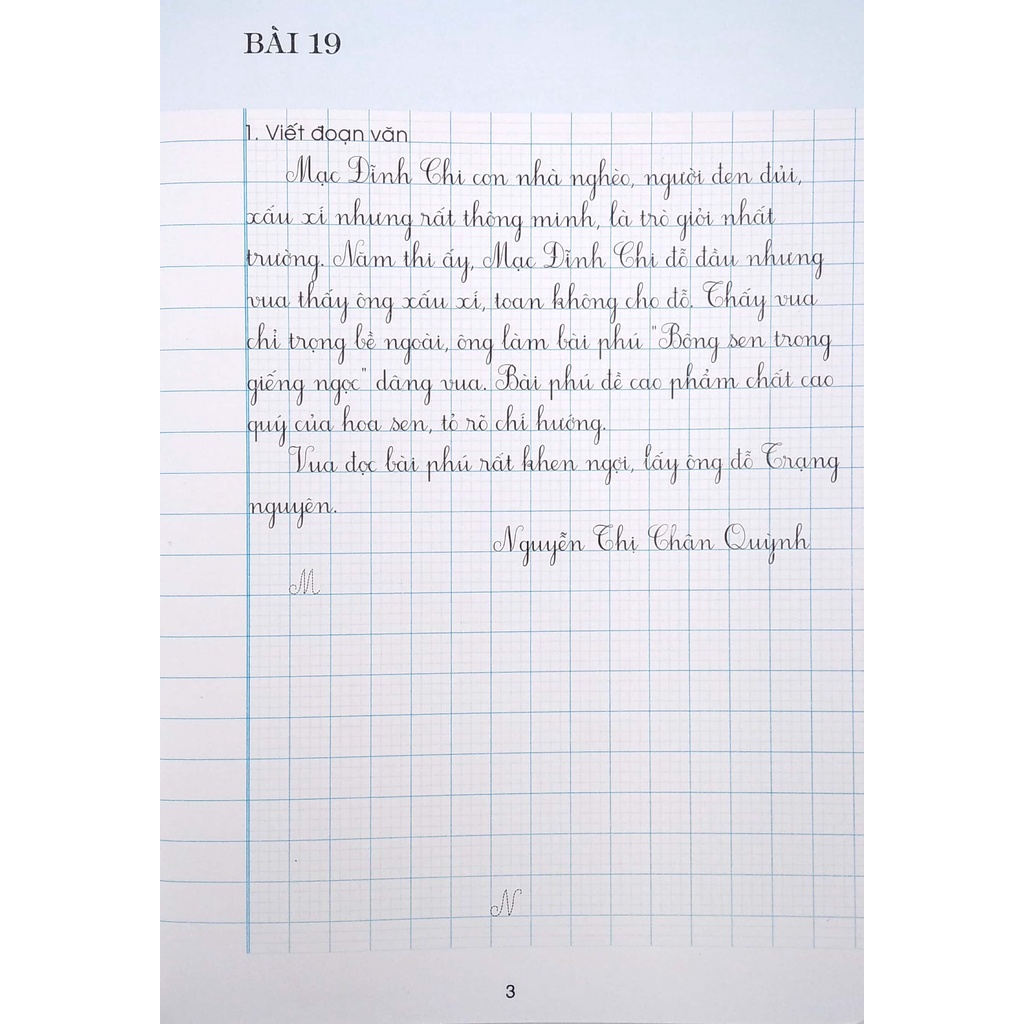 BÀI 19
1. Viết đoạn văn
Mạc Đĩnh Chi con nhà nghèo, người đen đủi,
xấu xí nhưng rất thông minh, là trò giỏi nhất
trường. Năm thi ấy, Mạc Đĩnh Chi đỗ đầu nhưng
vua thấy ông xấu xí, toan không cho đỗ. Thấy vua
chỉ trọng bề ngoài, ông làm bài phú "Bông sen trong
giếng ngọc" dâng vua. Bài phú đề cao phẩm chất cao
quý của hoa sen, tỏ rõ chí hướng.
Vua đọc bài phú rất khen ngợi, lấy ông đỗ Trạng
nguyên.
Nguyễn Thị Chân Quỳnh
M
N
3